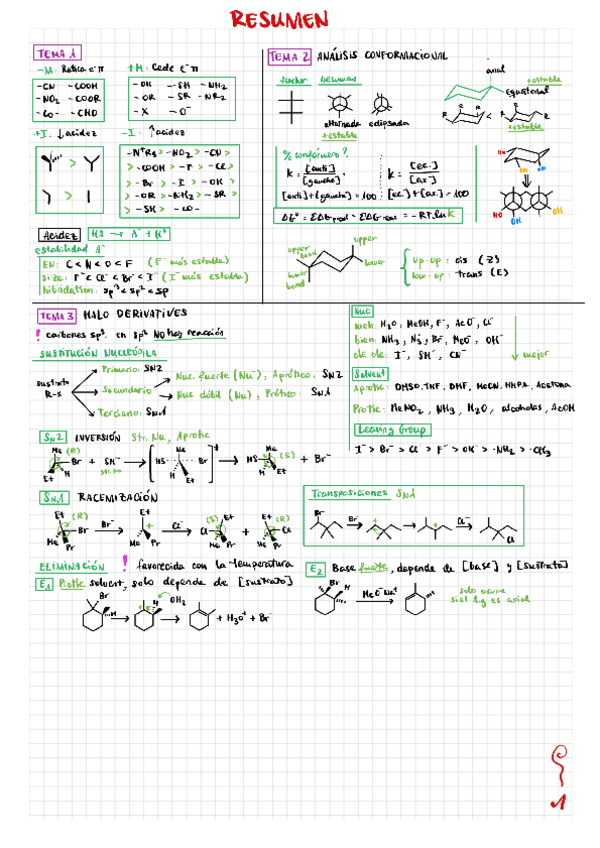 RESUMEN
TEMA 1
-M: Retira e⁻π
+M: Cede e⁻π
-CN -COOH
-NO₂ -COOR
-CO- -CHO
-OH -SH -NH₂
-OR -SR -NR₂
-X -O⁻
+I: ↓acidez
-I: ↑acidez
-N⁺R₃ > -NO₂ > -CN >
> -COOH > -F > -Cl >
> -Br > -I > -OH >
> -OR > -NH₂ > -SR >
> -SH > -CO-
Acidez HA → A⁻ + H⁺
estabilidad A⁻
EN: C < N < O < F (F⁻ más estable)
size: F⁻ < Cl⁻ < Br⁻ < I⁻ (I⁻ más estable)
hibridation: sp³ < sp² < sp
TEMA 2 ANÁLISIS CONFORMACIONAL
fischer newman
alternada eclipsada
+estable
axial
equatorial
+estable
R R < R R
+estable
% confórmero?
K = [anti] / [gauche]
[anti] + [gauche] = 100
K = [ec.] / [ax.]
[ec.] + [ax.] = 100
ΔG° = ΣΔG prod - ΣΔG reac = -RT·ln K
HO OH OH
HO OH OH
upper bond
upper
lower
lower bond
up-up: cis (Z)
low-up: trans (E)
TEMA 3 HALO DERIVATIVES
! carbones sp³. en sp² NO hay reacción
SUSTITUCIÓN NUCLEÓFILA
sustrato R-X
Primario: SN2
Secundario
Terciario: SN1
Nuc. fuerte (Nu⁻), Aprótico: SN2
Nuc débil (Nu), Prótico: SN1
Nuc
meh: H₂O, MeOH, F⁻, AcO⁻, Cl⁻
bien: NH₃, N₃⁻, Br⁻, MeO⁻, OH⁻
ole ole: I⁻, SH⁻, CN⁻
mejor
Solvent
Aprotic: DMSO, THF, DMF, MeCN, HMPA, Acetona
Protic: MeNO₂, NH₃, H₂O, alcoholes, AcOH
Leaving Group
I⁻ > Br⁻ > Cl⁻ > F⁻ > OH⁻ > -NH₂ > -CH₃
SN2 INVERSIÓN Str. Nu, Aprotic
Me (R) Br H Et + SH⁻ → [HS Me Br H Et]‡ → HS Me (S) H Et + Br⁻
str. nu
SN1 RACEMIZACIÓN
Et (R) Br Me Pr Br⁻ Et + Me Pr Cl⁻ (S) Et Cl Me Pr + Et (R) Cl Me Pr
Transposiciones SN1
Br Br⁻ + + Cl⁻ Cl
ELIMINACIÓN ! favorecida con la temperatura
E1 Protic solvent, solo depende de [sustrato]
Br H H OH₂ + H₃O⁺ + Br⁻
E2 Base fuerte, depende de [base] y [sustrato]
Br H MeO⁻Na⁺
solo ocurre
si el l.g es axial
1